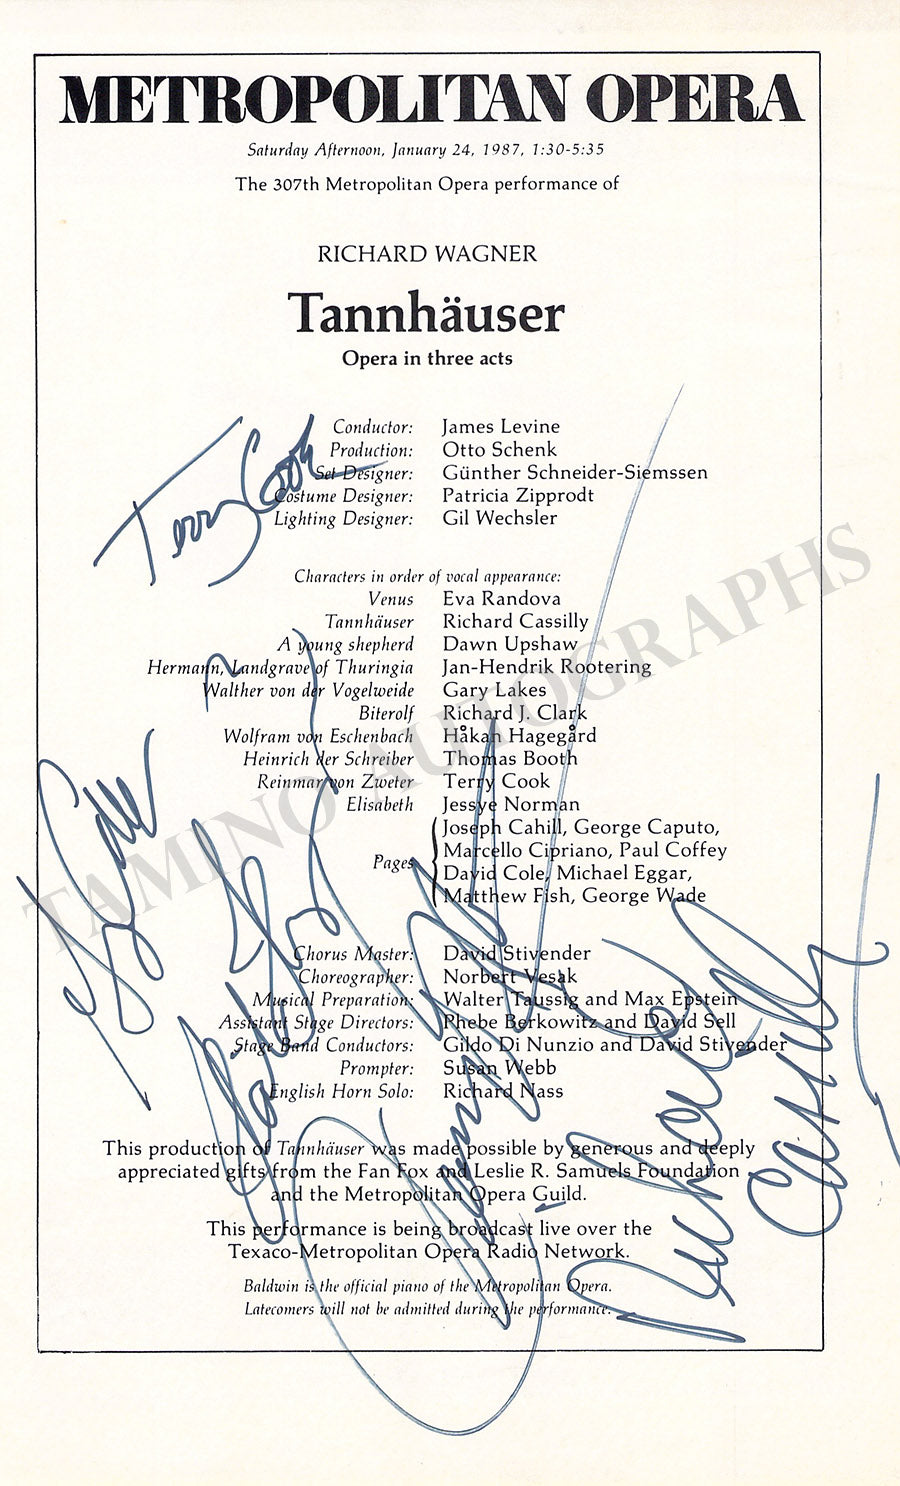 METROPOLITAN OPERA
Saturday Afternoon, January 24, 1987, 1:30-5:35
The 307th Metropolitan Opera performance of
RICHARD WAGNER
Tannhäuser
Opera in three acts
Conductor: James Levine
Production: Otto Schenk
Set Designer: Günther Schneider-Siemssen
Costume Designer: Patricia Zipprodt
Lighting Designer: Gil Wechsler
Terry Cook
Characters in order of vocal appearance:
Venus Eva Randova
Tannhäuser Richard Cassilly
A young shepherd Dawn Upshaw
Hermann, Landgrave of Thuringia Jan-Hendrik Rootering
Walther von der Vogelweide Gary Lakes
Biterolf Richard J. Clark
Wolfram von Eschenbach Håkan Hagegård
Heinrich der Schreiber Thomas Booth
Reinmar von Zweter Terry Cook
Elisabeth Jessye Norman
Pages Joseph Cahill, George Caputo,
Marcello Cipriano, Paul Coffey
David Cole, Michael Eggar,
Matthew Fish, George Wade
Chorus Master: David Stivender
Choreographer: Norbert Vesak
Musical Preparation: Walter Taussig and Max Epstein
Assistant Stage Directors: Phebe Berkowitz and David Sell
Stage Band Conductors: Gildo Di Nunzio and David Stivender
Prompter: Susan Webb
English Horn Solo: Richard Nass
This production of Tannhäuser was made possible by generous and deeply
appreciated gifts from the Fan Fox and Leslie R. Samuels Foundation
and the Metropolitan Opera Guild.
This performance is being broadcast live over the
Texaco-Metropolitan Opera Radio Network.
Baldwin is the official piano of the Metropolitan Opera.
Latecomers will not be admitted during the performance.
Richard Cassilly
TAMINO AUTOGRAPHS